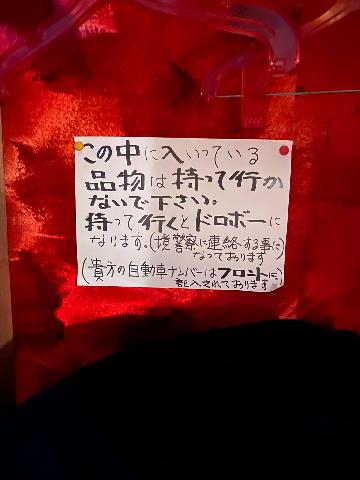 この中に入いっている
品物は持って行か
ないで下さい。
持って行くとドロボーに
なります。(境警察に連絡する事に)
なっております
(貴方の自動車ナンバーはフロントに)
記入されております